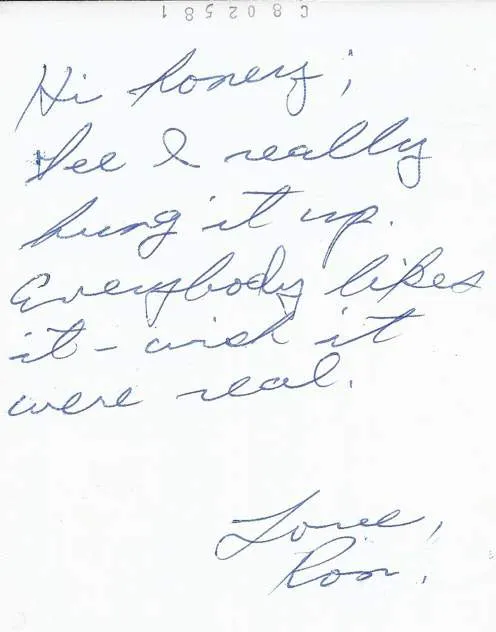 C802581
Hi honey;
See I really
hung it up.
Everybody likes
it - wish it
were real.
Love,
Ron.